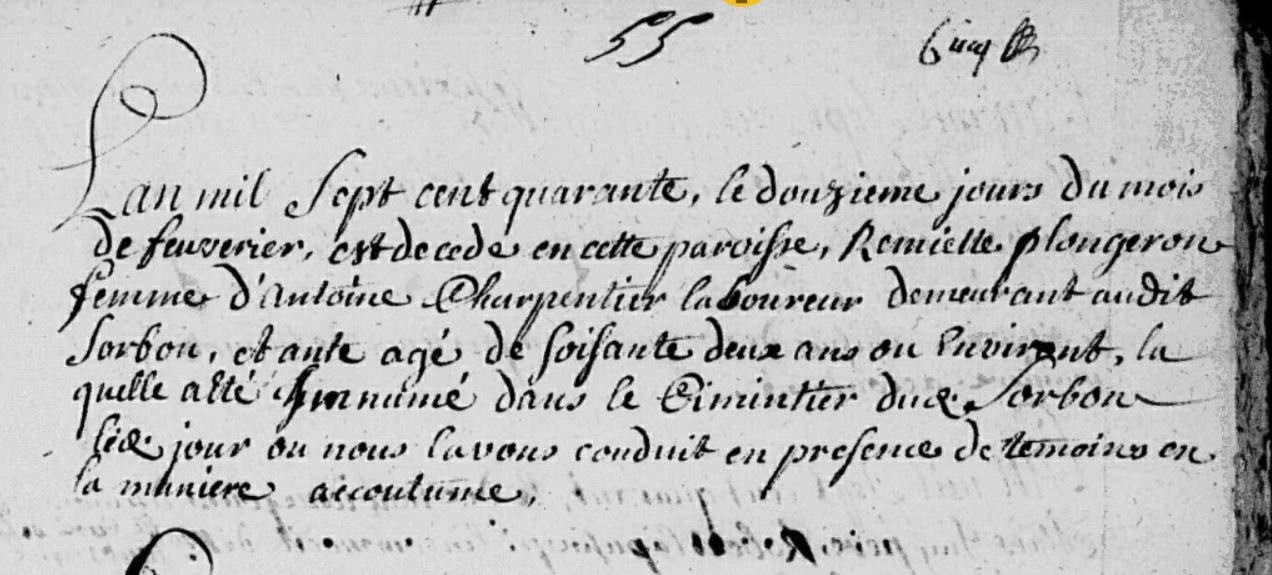 55
Lan mil Sept cent quarante, le douzieme jours du mois
de feuverier, est decede en cette paroisse, Remiette plongeron
femme d'antoine Charpentier laboureur demeurant audit
Sorbon, etante agé de soisante deux ans ou Environt, la
quelle a eté Innumé dans le Cimintier dud. Sorbon
led. jour ou nous lavons conduit en presence de temoins en
la maniere accoutumé,